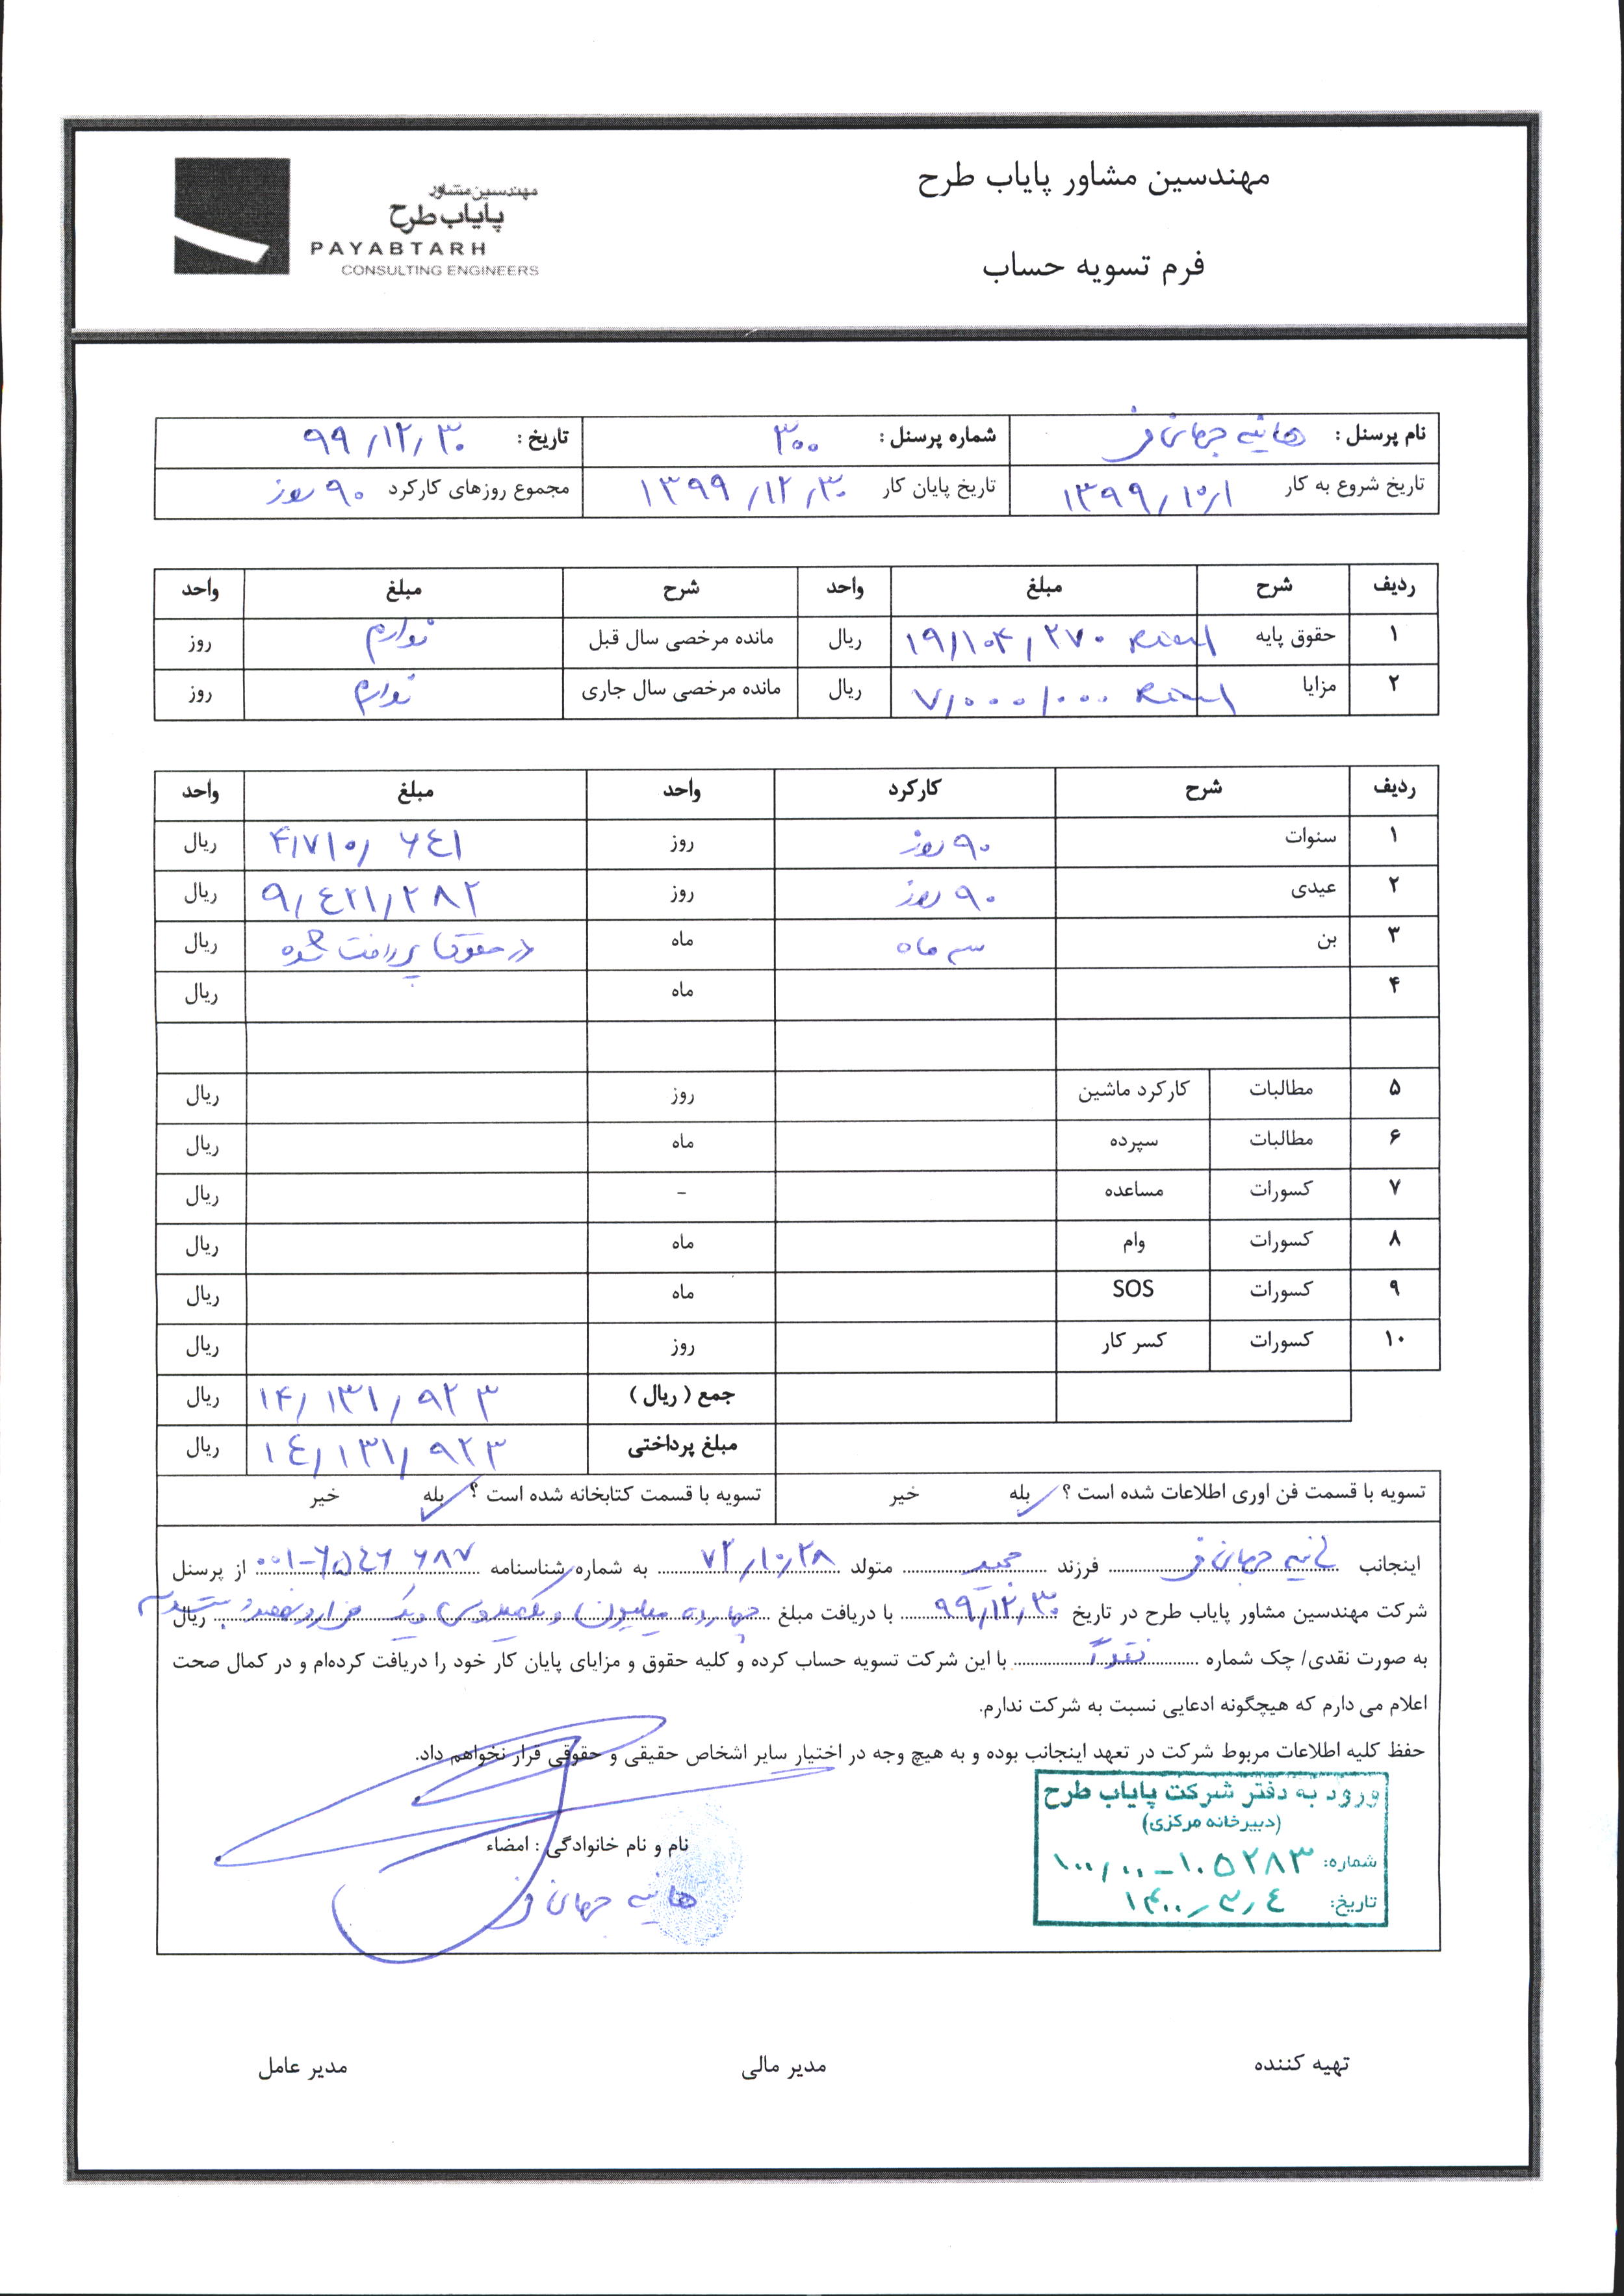 مهندسین مشاور پایاب طرح
مهندسین مشاور
پایاب طرح
PAYABTARH
CONSULTING ENGINEERS
فرم تسویه حساب
نام پرسنل : هانیه جهانی فر شماره پرسنل : ۳۰۰ تاریخ : ۹۹/۱۲/۳۰
تاریخ شروع به کار ۱۳۹۹/۱۰/۱ تاریخ پایان کار ۱۳۹۹/۱۲/۳۰ مجموع روزهای کارکرد ۹۰ روز
ردیف شرح مبلغ واحد شرح مبلغ واحد
۱ حقوق پایه ۱۹/۱۰۴/۲۷۰ Rial ریال مانده مرخصی سال قبل ندارم روز
۲ مزایا ۷/۰۰۰/۰۰۰ Rial ریال مانده مرخصی سال جاری ندارم روز
ردیف شرح کارکرد واحد مبلغ واحد
۱ سنوات ۹۰ روز روز ۴/۷۱۰/۶۴۱ ریال
۲ عیدی ۹۰ روز روز ۹/۴۲۱/۲۸۲ ریال
۳ بن سه ماه ماه در حقوق پرداخت شده ریال
۴ ماه ریال
۵ مطالبات کارکرد ماشین روز ریال
۶ مطالبات سپرده ماه ریال
۷ کسورات مساعده - ریال
۸ کسورات وام ماه ریال
۹ کسورات SOS ماه ریال
۱۰ کسورات کسر کار روز ریال
جمع ( ریال ) ۱۴/۱۳۱/۹۲۳ ریال
مبلغ پرداختی ۱۴/۱۳۱/۹۲۳ ریال
تسویه با قسمت فن اوری اطلاعات شده است ؟ بله خیر تسویه با قسمت کتابخانه شده است ؟ بله خیر
اینجانب هانیه جهانی فر فرزند مجید متولد ۷۲/۱۰/۲۸ به شماره شناسنامه ۰۰۱-۶۵۴۶۶۸۷ از پرسنل
شرکت مهندسین مشاور پایاب طرح در تاریخ ۹۹/۱۲/۳۰ با دریافت مبلغ چهارده میلیون و یکصد و سی و یک هزار و نهصد و بیست و سه ریال
به صورت نقدی/ چک شماره نقداً با این شرکت تسویه حساب کرده و کلیه حقوق و مزایای پایان کار خود را دریافت کرده‌ام و در کمال صحت
اعلام می دارم که هیچگونه ادعایی نسبت به شرکت ندارم.
حفظ کلیه اطلاعات مربوط شرکت در تعهد اینجانب بوده و به هیچ وجه در اختیار سایر اشخاص حقیقی و حقوقی قرار نخواهم داد.
ورود به دفتر شرکت پایاب طرح
(دبیرخانه مرکزی)
شماره: ۱۰۰/۰۰-۱۰۵۲۸۳
تاریخ: ۱۴۰۰/۳/۴
نام و نام خانوادگی : امضاء
هانیه جهانی فر
تهیه کننده مدیر مالی مدیر عامل